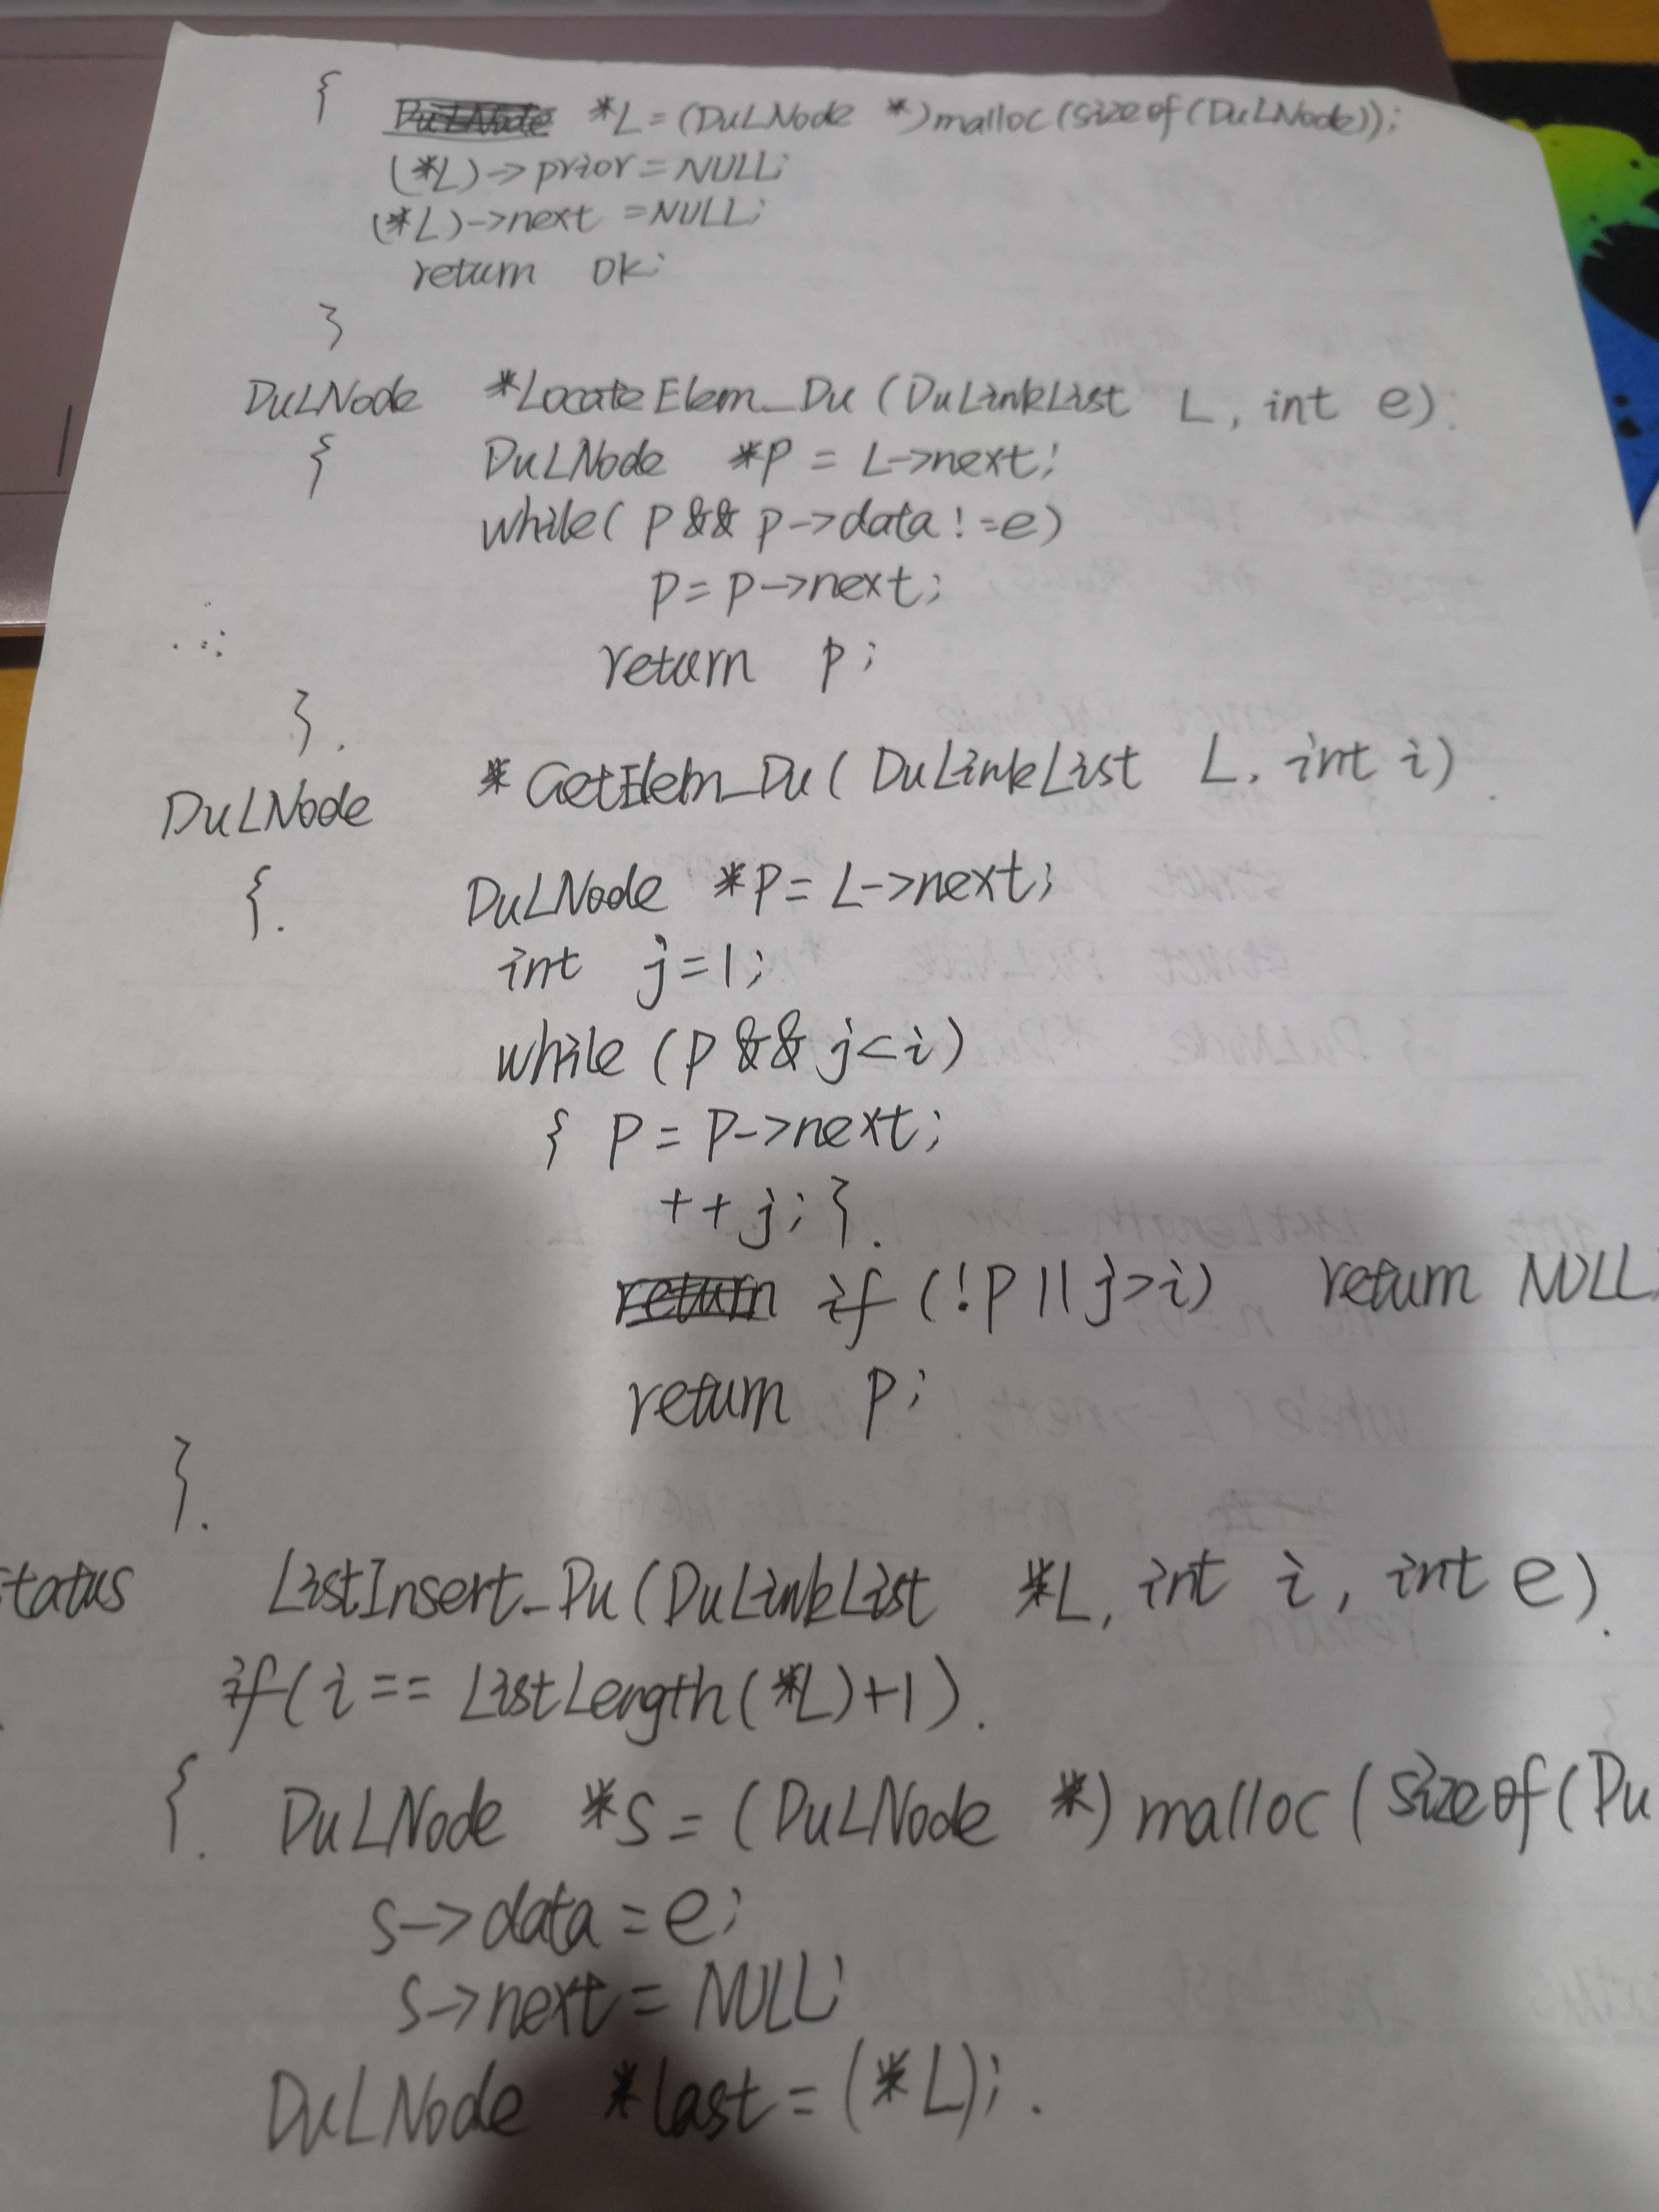 { *L=(DuLNode *)malloc(sizeof(DuLNode));
(*L)->prior=NULL;
(*L)->next =NULL;
return ok;
}
DuLNode *LocateElem_Du(DuLinkList L, int e);
{ DuLNode *p = L->next;
while( p && p->data!=e)
p=p->next;
return p;
}.
DuLNode *GetElem_Du( DuLinkList L, int i)
{. DuLNode *p= L->next;
int j=1;
while (p && j<i)
{ p = p->next;
++j;}.
if (!p || j>i) return NULL;
return p;
}.
status ListInsert_Du(DuLinkList *L, int i, int e).
if(i== ListLength(*L)+1).
{. DuLNode *s= (DuLNode *) malloc (sizeof(Du
s->data=e;
s->next = NULL;
DuLNode *last=(*L);.